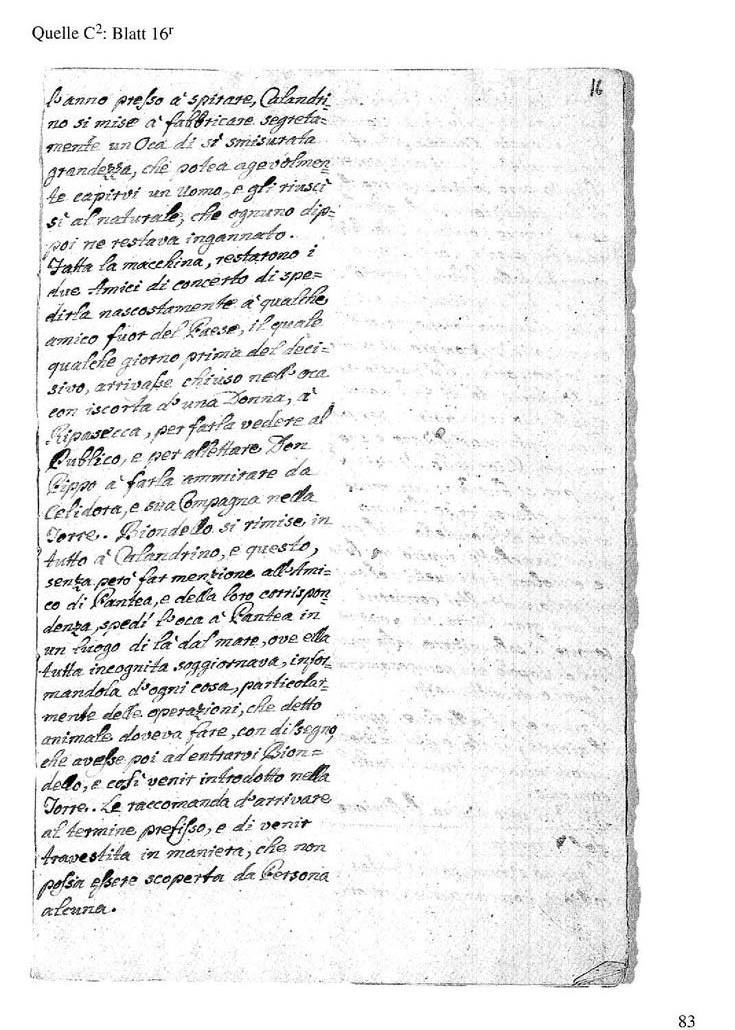 Quelle C²: Blatt 16ʳ
16
l'anno presso à spirare, Calandri=
no si mise à fabbricare segreta=
mente un Oca di sì smisurata
grandezza, che potea agevolmen=
te capirvi un Uomo, e gli riuscì
sì al naturale, che ognuno dip=
poi ne restava ingannato.
Fatta la macchina, restarono i
due Amici di concerto di spe=
dirla nascostamente à qualche
amico fuor del Paese, il quale
qualche giorno prima del deci=
sivo, arrivasse chiuso nell'oca
con iscorta d'una Donna, à
Ripasecca, per farla vedere al
Publico, e per allettare Don
Pippo à farla ammirare da
Celidora, e sua Compagna nella
Torre. Biondello si rimise in
tutto à Calandrino, e questo,
senza però far menzione all'Ami=
co di Pantea, e della loro corrispon=
denza, spedì l'oca à Pantea in
un luogo di là dal mare, ove ella
tutta incognita soggiornava, infor=
mandola d'ogni cosa, particolar=
mente delle operazioni, che detto
animale doveva fare, con disegno,
che avesse poi ad entrarvi Bion=
dello, e così venir introdotto nella
Torre. Le raccomanda d'arrivare
al termine prefisso, e di venir
travestita in maniera, che non
possa essere scoperta da Persona
alcuna.
83